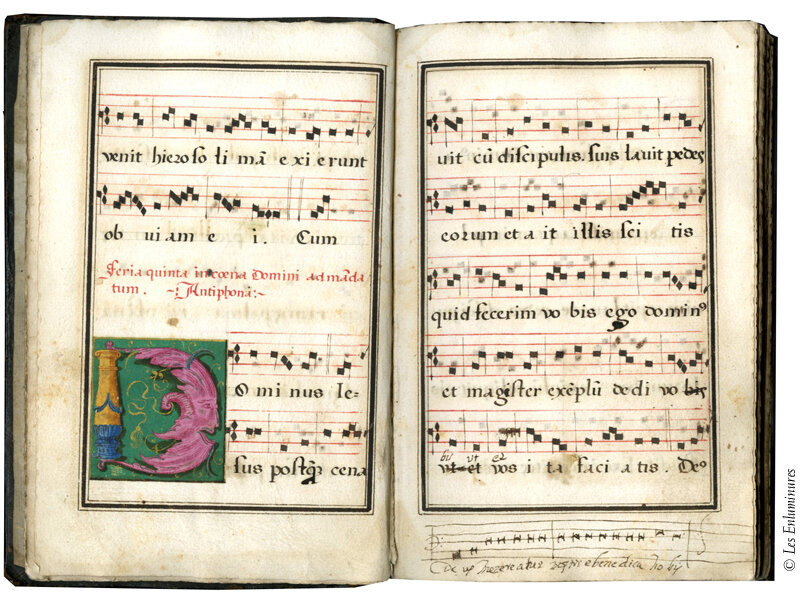 venit hieroso li mā e xi e runt
ob vi am e i. Cum
Feria quinta in coena Domini ad māda
tum. Antiphona:
D O mi nus Ie-
sus postq̄ cena
vit cū disci pulis. suis lavit pedes
eorum et a it illis sci tis
quid fecerim vo bis ego dominꝰ
et magister exēplū de di vo bis
bis vt et
vt et vos i ta faci a tis. Deꝰ
© Les Enluminures